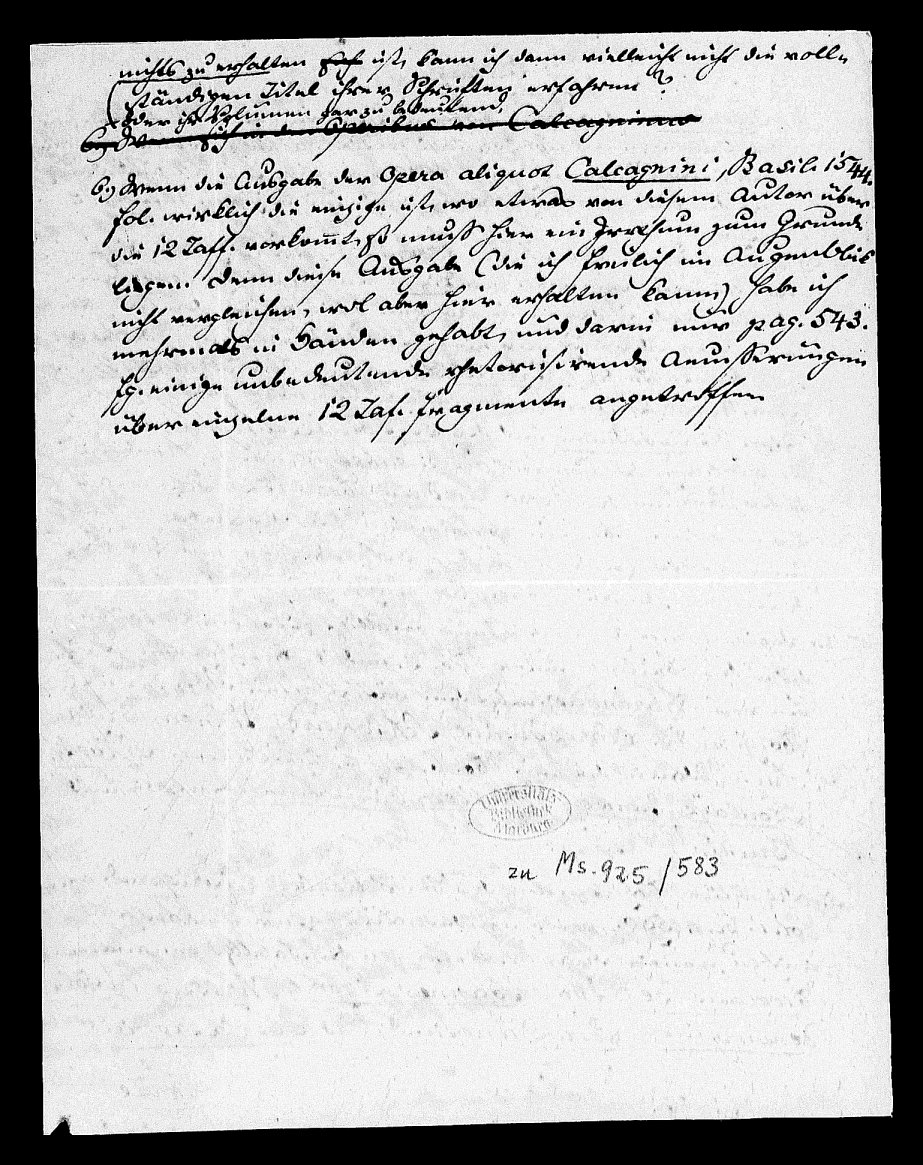 nichts zu erhalten ist, kann ich dann vielleicht nicht die voll-
ständigen Titel ihrer Schriften erfahren?
(oder ihr Volumen gar zu bedeutend)
6) Opera von Calcagninus
6) Wenn die Ausgabe der Opera aliquot Calcagnini, Basil. 1544.
fol. wirklich die einzige ist, wo etwas von diesem Autor über
die 12 Taff. vorkommt, so muß hier ein Irrthum zum Grunde
liegen. Denn diese Ausgabe (die ich freilich im Augenblick
nicht vergleichen, wol aber hier erhalten kann) habe ich
mehrmals in Händen gehabt, und darin nur pag. 543.
sq. einige unbedeutende rhetorisirende Aeusserungen
über einzelne 12 Taf. Fragmente angetroffen
Universitäts
Bibliothek
Marburg
zu Ms. 925/583